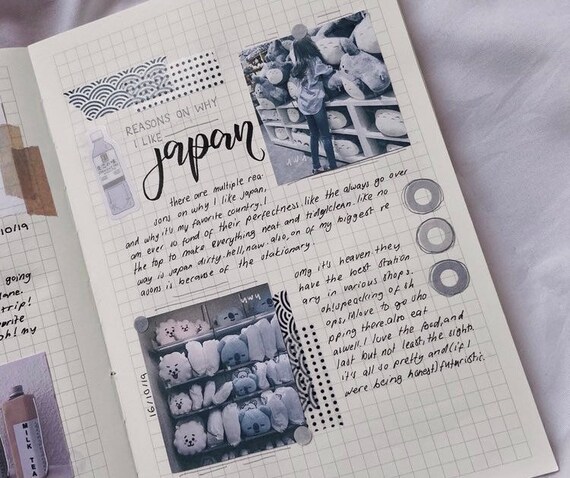 REASONS ON WHY
I LIKE
japan
there are multiple rea-
sons on why I like japan,
and why it's my favorite country!
am ever so fond of their perfectness. like the always go over
the top to make everything neat and tidy/clean. like no
way is japan dirty. hell, naw. also, on of my biggest re
asons is because of the stationary.
omg it's heaven. they
have the best station
ary in various shops.
oh! speaking of sh
ops, i love to go sho
pping there. also eat
aswell. I love the food, and
last but not least, the sight.
it's all so pretty and (if I
were being honest) futuristic.
uwu
uwu
16/10/19
10/19
going
lane.
trip!
vorite
oh! my
MILK TEA